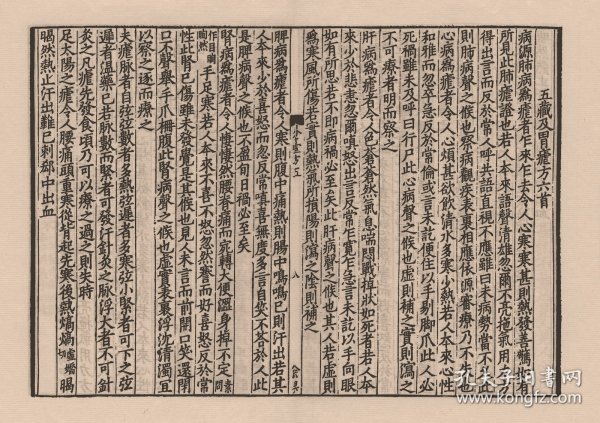 五臟及胃瘧方六首
病源肺病為瘧者乍來乍去令人心寒寒甚則熱發善驚如有
所見此肺瘧證也若人本來語聲清雄忽爾不亮拖氣用力方
得出言而反於常人呼共語直視不應雖曰未病勢當不久此
則肺病聲之候也察病觀疾表裏相應依源審療乃不失也
心病為瘧者令人心煩其欲飲清水多寒少熱若人本來心性
和雅而忽卒急反於常倫或言未訖便住以手剔腳爪此人必
死禍雖未及呼曰行尸此心病聲之候也虛則補之實則瀉之
不可療者明而察之
肝病為瘧者令人色蒼蒼然氣息喘悶戰掉狀如死者若人本
來少於悲恚忽爾嗔怒出言反常乍寬乍急言未訖以手向眼
如有所思若不即病禍必至矣此肝病聲之候也其人若虛則
為寒風所傷若實則熱氣所損陽則瀉之陰則補之
脾病為瘧者令人寒則腹中痛熱則腸中鳴鳴已則汗出若其
人本來少於喜怒而忽反常嗔喜無度多言自笑不答於人此
是脾病聲之候也不盈旬日禍必至矣
腎病為瘧者令人悽悽然腰脊痛而宛轉大便澀身掉不定
手足寒若人本來不喜不怒忽然謇而好喜怒反於常
性此腎已傷雖未發覺是其候也見人未言而前開口笑還閉
口不聲舉手爪柵腹此腎病聲之候也虛實表裏浮沈清濁宜
以察之逐而療之
夫瘧脉者自弦弦數者多熱弦遲者多寒弦小緊者可下之弦
遲者溫藥已若脉數而緊者可發汗針灸之脉浮大者不可針
灸之凡瘧先發食頃乃可以療之過之則失時
足太陽之瘧令人腰痛頭重寒從背起先寒後熱熇熇
暍暍然熱止汗出難已刺郄中出血
孔夫子旧书网
www.kongfz.com